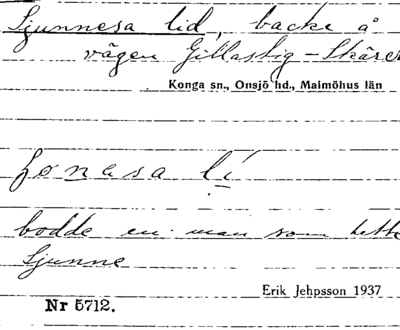 Sjunnesa lid, backe å
vägen Gillastig - Skäret
Konga sn., Onsjö hd., Malmöhus län
bodde en man som hette
Sjunne
Erik Jehpsson 1937
Nr 5712.